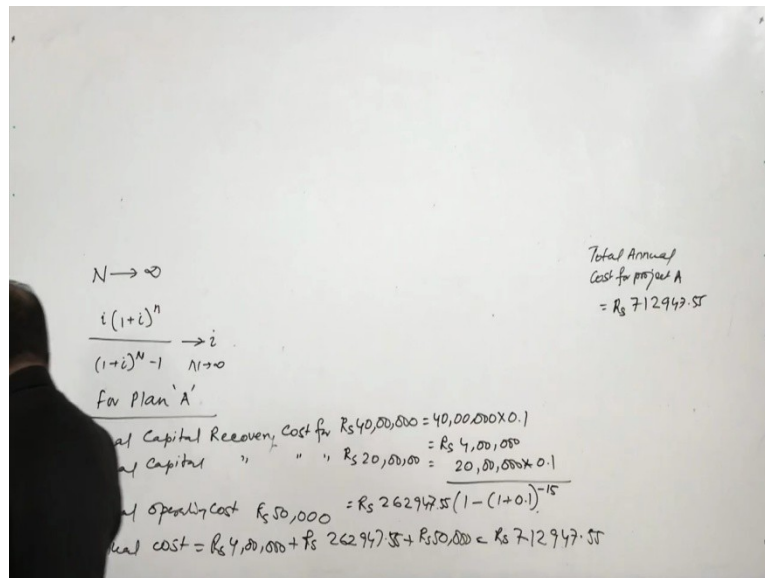 N → ∞
i(1+i)^n
(1+i)^N -1
→ i
N→∞
For Plan 'A'
al Capital Recovery Cost for Rs 40,00,000 = 40,00,000 X 0.1
= Rs 4,00,000
al Capital " " " Rs 20,00,00 = 20,00,000 X 0.1
(1-(1+0.1)^-15
al operating cost Rs 50,000 = Rs 262947.55
ual cost = Rs 4,00,000 + Rs 262947.55 + Rs 50,000 = Rs 712947.55
Total Annual
Cost for project A
= Rs 712947.55